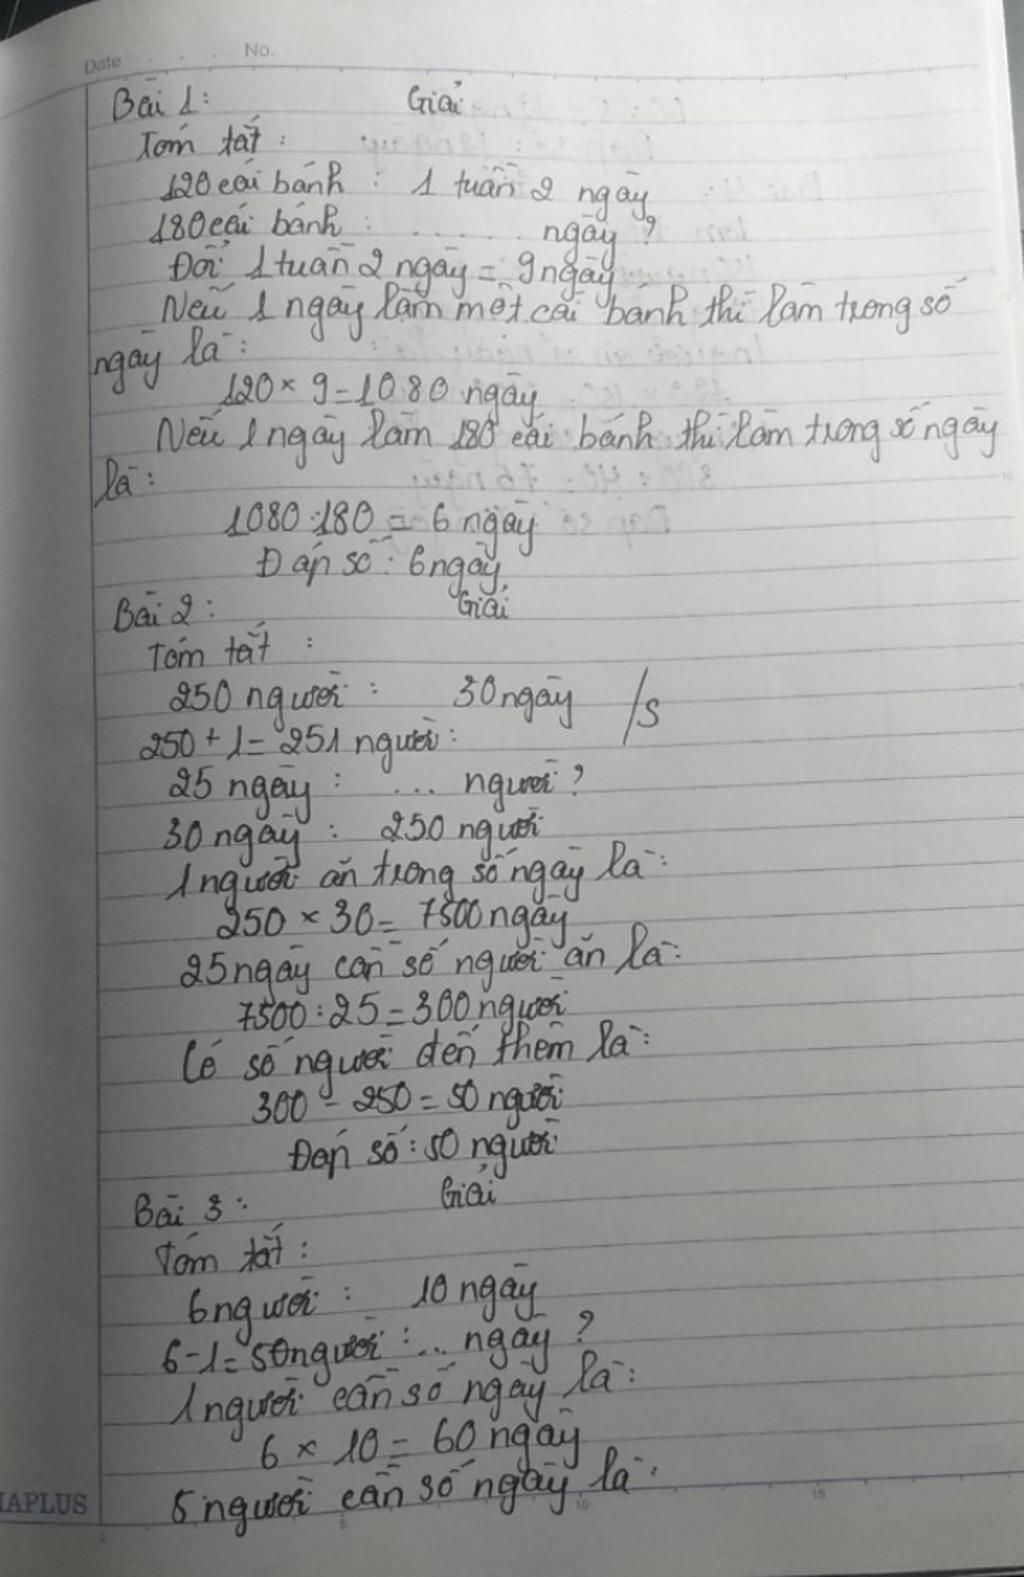 Date . . . . No.
Bài 1: Giải
Tóm tắt :
120 cái bánh : 1 tuần 2 ngày
180 cái bánh : . . . . . ngày ?
Đổi 1 tuần 2 ngày = 9 ngày
Nếu 1 ngày làm một cái bánh thì làm trong số
ngày là :
120 × 9 = 1080 ngày
Nếu 1 ngày làm 180 cái bánh thì làm trong số ngày
là :
1080 : 180 = 6 ngày
Đáp số : 6 ngày
Bài 2 : Giải
Tóm tắt :
250 người : 30 ngày /S
250 + 1 = 251 người :
25 ngày : ... người ?
30 ngày : 250 người
1 người ăn trong số ngày là :
250 × 30 = 7500 ngày
25 ngày cần số người ăn là :
7500 : 25 = 300 người
Có số người đến thêm là :
300 - 250 = 50 người
Đáp số : 50 người
Bài 3 : Giải
Tóm tắt :
6 người : 10 ngày
6-1= 50 người : ... ngày ?
1 người cần số ngày là :
6 × 10 = 60 ngày
5 người cần số ngày là :
APLUS 0 5 10 15